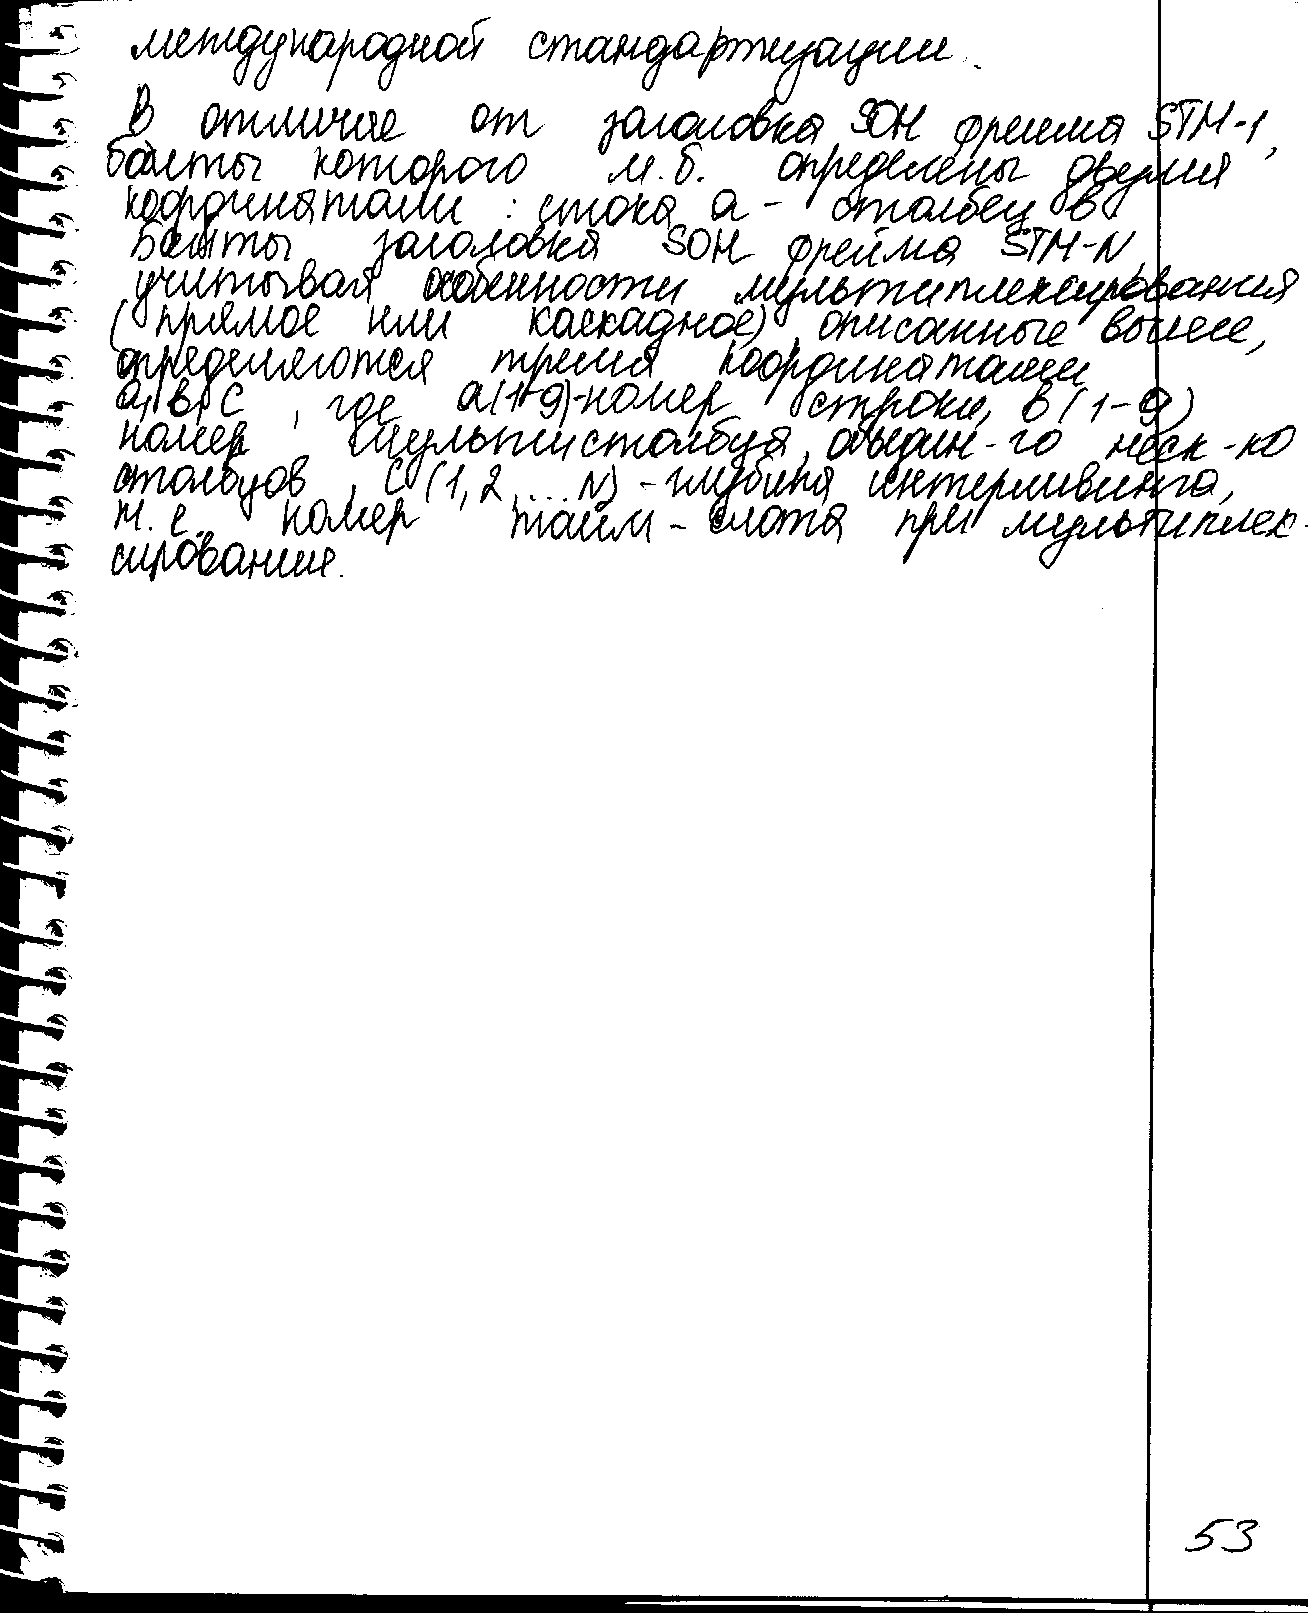 международной стандартизации.
В отличие от заголовка SOH фрейма STM-1,
байты которого м.б. определены двумя
координатами : стока а - столбец в.
Байты заголовка SOH фрейма STM-N,
учитывая особенности мультиплексирования
(прямое или каскадное), описанные выше,
определяются тремя координатами
а, в, с , где а(1÷9)-номер строки, в (1-9)
номер мультистолбца, объедин-го неск-ко
столбцов , с (1, 2, ... N) - глубина интерливинга,
т. е. номер тайм - слота при мультиплек-
сировании.
53